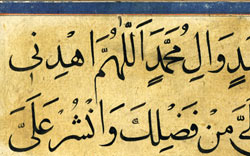 ـدٍ وَ اٰلِ مُحَمَّدٍ اَللّٰهُمَّ اهْدِنٖى
مِنْ فَضْلِكَ وَ انْشُرْ عَلَىَّ